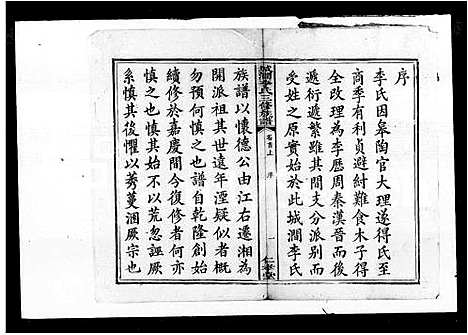 序
李氏因皐陶官大理遂得氏至
商季有利貞避紂難食木子得
全改理為李歷周秦漢晉而後
遞衍遞繁雖其間支分派別而
受姓之原實始於此城澗李氏
城澗李氏三修族譜
卷首上
序
一
仁孝堂
族譜以懷德公由江右遷湘為
開派祖其世遠年湮疑似者概
勿妄預也譜自乾隆創始
續修於嘉慶間今復修者何亦
慎之也慎其始不以荒忽誣厥
系慎其後懼以莠蔓溷厥宗也